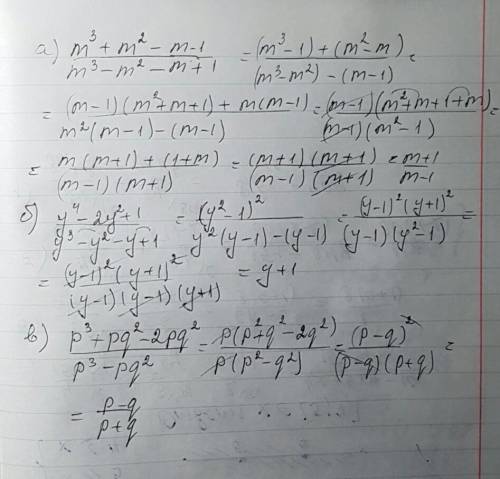 а) (m³ + m² - m - 1)/(m³ - m² - m + 1) = ((m³ - 1) + (m² - m))/((m³ - m²) - (m - 1)) =
= ((m-1)(m² + m + 1) + m(m-1))/(m²(m-1) - (m-1)) = ((m-1)(m² + m + 1 + m))/((m-1)(m² - 1)) =
= (m(m+1) + (1+m))/((m-1)(m+1)) = ((m+1)(m+1))/((m-1)(m+1)) = (m+1)/(m-1)
б) (y⁴ - 2y² + 1)/(y³ - y² - y + 1) = (y² - 1)²/(y²(y-1) - (y-1)) = ((y-1)²(y+1)²)/((y-1)(y² - 1)) =
= ((y-1)²(y+1)²)/((y-1)(y-1)(y+1)) = y+1
в) (p³ + pq² - 2pq²)/(p³ - pq²) = (p(p² + q² - 2q²))/(p(p² - q²)) = (p-q)²/((p-q)(p+q)) =
= (p-q)/(p+q)